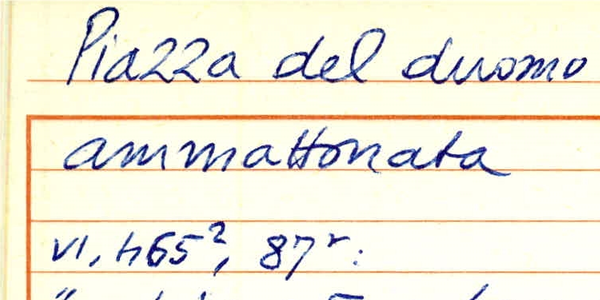 Piazza del duomo
ammattonata
VI, 465², 87ʳ: